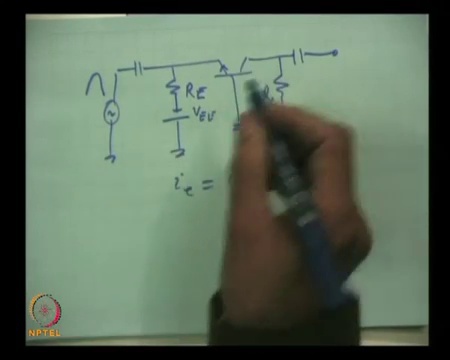 RE
VEE
ie =
NPTEL